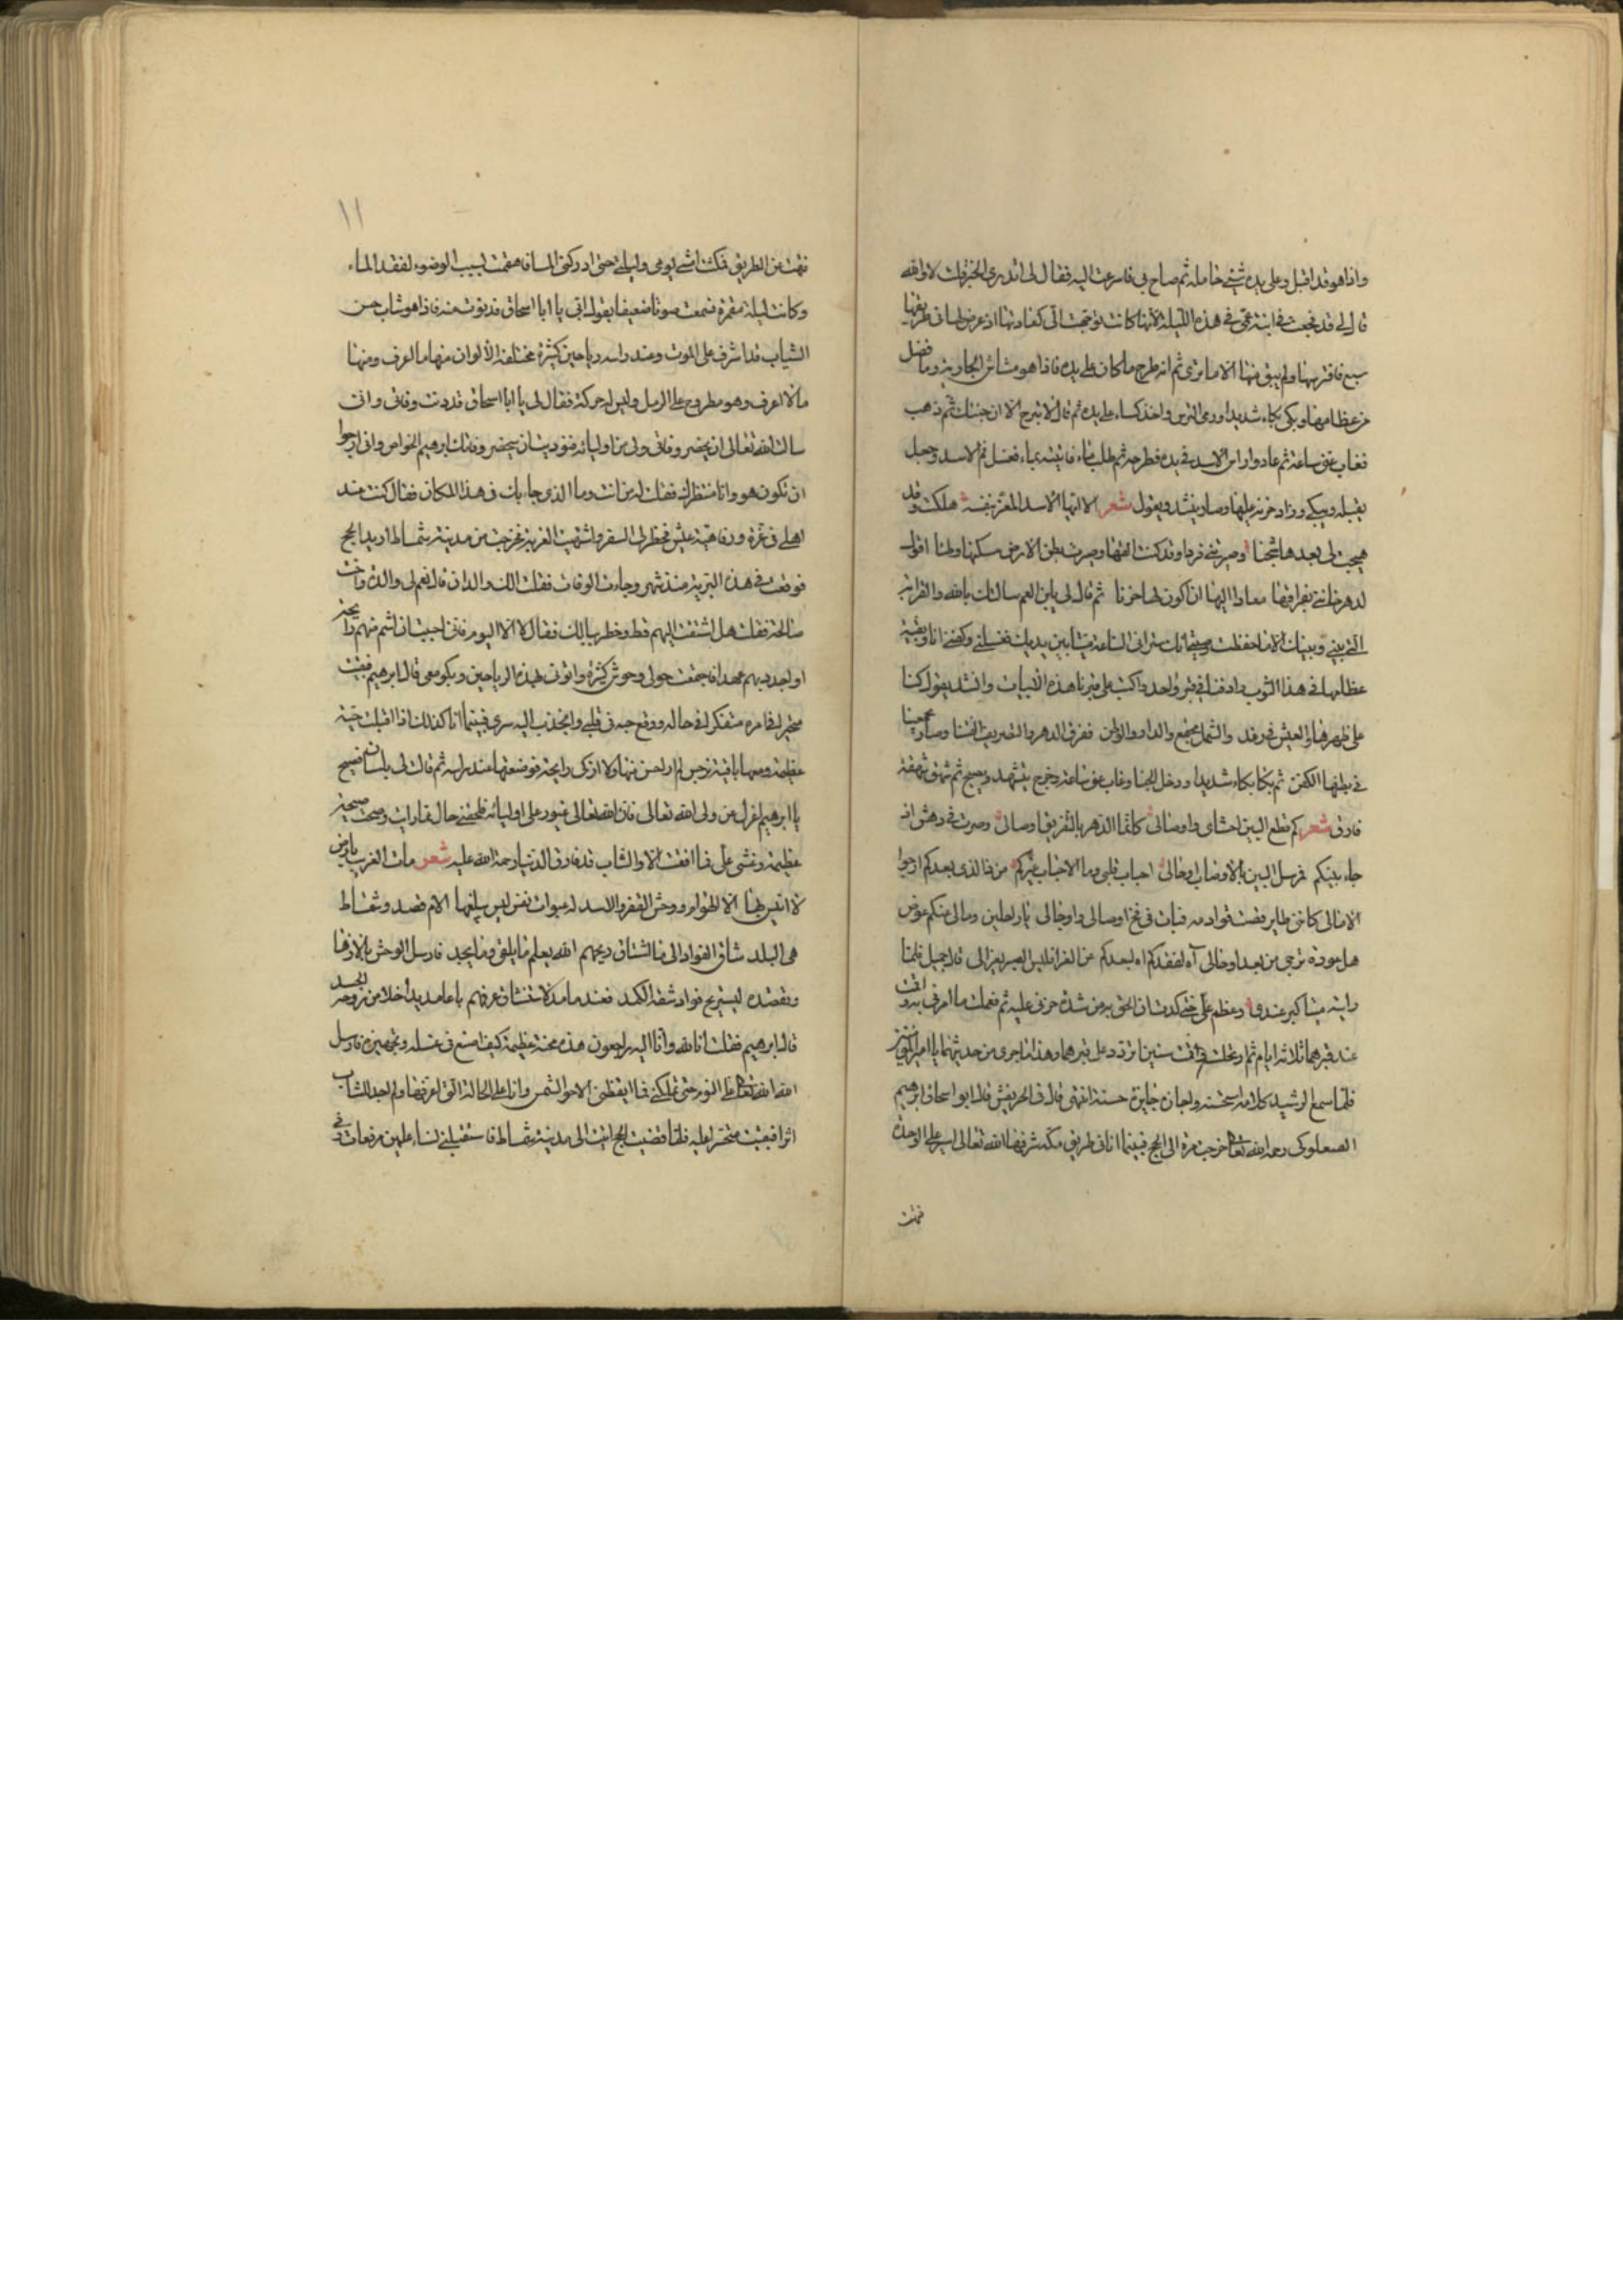 واذا هو قد اقبل وعلى يده شيئ حامله ثم صاح بي فاسرعت اليه فقال لي اتدري الخبر قلت لا والله
قال لي قد فجعت في ابنة عمي في هذه الليلة لانها كانت توجهت الي كعادتها اذ عرض لها في طريقها
سبع فافترسها ولم يبق منها الا ما ترى ثم انه طرح ما كان على يده فاذا هو مشاش الجارية وما فضل
من عظامها وبكى بكاء شديدا ورمى الترس واخذ كساء على يده ثم قال لا تبرح الا ان جئتك ثم ذهب
فغاب عني ساعة ثم عاد وراس الاسد في يده فطرحه ثم طلب ماء فاتيته بماء فغسل فم الاسد وجعل
يقبله ويبكي وزاد حزنه عليها وصار ينشد ويقول شعر الا ايها الاسد المغر بنفسه هلكت وقد
هيجت لي بعدها شجنا وصيرتني فردا وقد كنت الفها وصيرت بطن الارض سكنها ولها اقول
لدهر خانني بفراقها معاذ الهنا ان اكون لها خونا ثم قال لي يابن العم سالتك بالله والقرابة
التي بيني وبينك الا ما حفظت وصيتي انك ستراني الساعة ميتا بين يديك فغسلني وكفني انا وبقية
عظامها في هذا الثوب وادفنا في قبر واحد واكتب على قبرنا هذه الابيات وانشد يقول كنا
على ظهرها والعيش في رغد والشمل مجتمع والدار والوطن ففرق الدهر والتصريف الفتنا وصار يجمعنا
في بطنها الكفن ثم بكا بكاء شديدا ودخل الخبا وغاب عني ساعة وخرج يتنهد ويصيح ثم شهق شهقة
فارق شعر كم قطع البين احشاي واوصالي كانما الدهر بالتفريق اوصالي وصرت في دهش اذ
جاء بينكم احباب قلبي وما الاحباب غيركم من ذا الذي بعدكم ارجوا
هل عودة ترجى من بعد اوخالي آه لفقدكم اه لبعدكم
رايته ميتا كبر عندي وعظم علي حتى كدت ان الحق به من شدة حزني عليه ثم فعلت ما امرني به واقمت
عند قبرهما ثلاثة ايام ثم ارتحلت واقمت سنين اتردد على قبرهما وهذا ما جرى من حديثهما يا امير المؤمنين
فلما سمع الرشيد كلامه استحسنه واجازه جايزة حسنة انتهى قال في الحريفش قال ابو اسحاق ابرهيم
الصعلوكي رحمه الله تعالى خرجت مرة الى الحج فبينما انا في طريق مكة شرفها الله تعالى اسير على الوحدة
فتهت
١١
فتهت عن الطريق فمكثت امشي يومي وليلي حتى ادركني المسا فاهتممت لسبب الوضوء لفقد الماء
وكانت ليلة مقمرة فسمعت صوتا ضعيفا يقول الي يا ابا اسحاق فدنوت منه فاذا هو شاب حسن
الشياب قد اشرف على الموت وعند راسه رياحين كثيرة مختلفة الالوان منها ما اعرف ومنها
ما لا اعرف وهو مطروح على الرمل وليس له حركة فقال لي يا ابا اسحاق قد دنت وفاتي واني
سالت الله تعالى ان يحضر وفاتي ولي من اوليائه فنوديت ان سيحضر وفاتك ابرهيم الخواص واني ارجوا
ان تكون هو وانا منتظرك فقلت له من انت وما الذي جاء بك في هذا المكان فقال كنت عند
اهلي في عزة ورفاهية عيش فخطر لي السفر واشتهيت الغربة فخرجت من مدينة شمشاط اريد الحج
فوقعت في هذه البرية منذ شهر وجاءت الوفات فقلت الك والدان قال نعم لي والدة واخت
صالحة فقلت هل اشتقت اليهم قط وخطر ببالك فقال لا الا اليوم فاني احببت ان اشم منهم رايحة
او اجدد بهم عهدا فاجتمعت حولي وحوش كثيرة واتوني بهذه الرياحين وبكو معي قال ابرهيم فبقيت
متحيرا في امره متفكرا في حاله ووقع حبه في قلبي وانجذب اليه سري فبينما انا كذلك اذ اقبلت حية
عظيمة ومعها باقة نرجس لم ار احسن منها ولا ازكى رايحة فوضعتها عند راسه ثم قالت لي بلسان فصيح
يا ابرهيم اعزل عن ولي الله تعالى فان الله تعالى غيور على اوليائه فلحقني حال مما رايت وصحت صيحة
عظيمة وغشي علي فما افقت الا والشاب قد فارق الدنيا رحمة الله عليه شعر مات الغريب بارض
لا انيس بها الا الهوام ووحش القفر والاسد
هي البلد شاق الفواد الى ما اشتاق ريحهم الله يعلم ما يلقى وما يجد فارسل الوحش
قال ابرهيم فقلت انا لله وانا اليه راجعون هذه محنة عظيمة كيف اصنع في غسله وتجهيزه فارسل
الله تعالى علي النوم حتى تملكني فما ايقظني الا حر الشمس وانا على الحالة التي اعرفها ولم اجد للشاب
اثرا فبقيت متحيرا عليه فلما قضيت الحج اتيت الى مدينة شمشاط فاستقبلني نساء عليهن مرقعات وفي